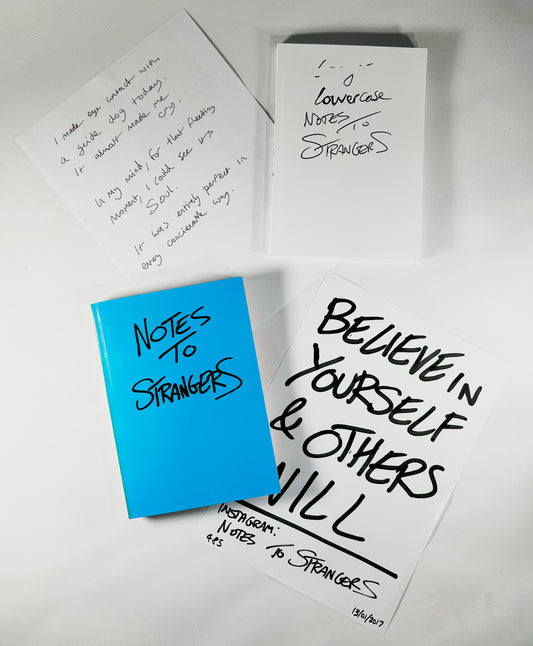 I made eye contact with
a guide dog today.
It almost made me
cry.
In my mind, for that fleeting
moment, I could see its
Soul.
It was entirely perfect in
every concievable way.
lowercase
NOTES
TO
STRANGERS
NOTES
TO
STRANGERS
BELIEVE IN
YOURSELF
& OTHERS
WILL
INSTAGRAM:
NOTES TO STRANGERS
485
13/01/2017